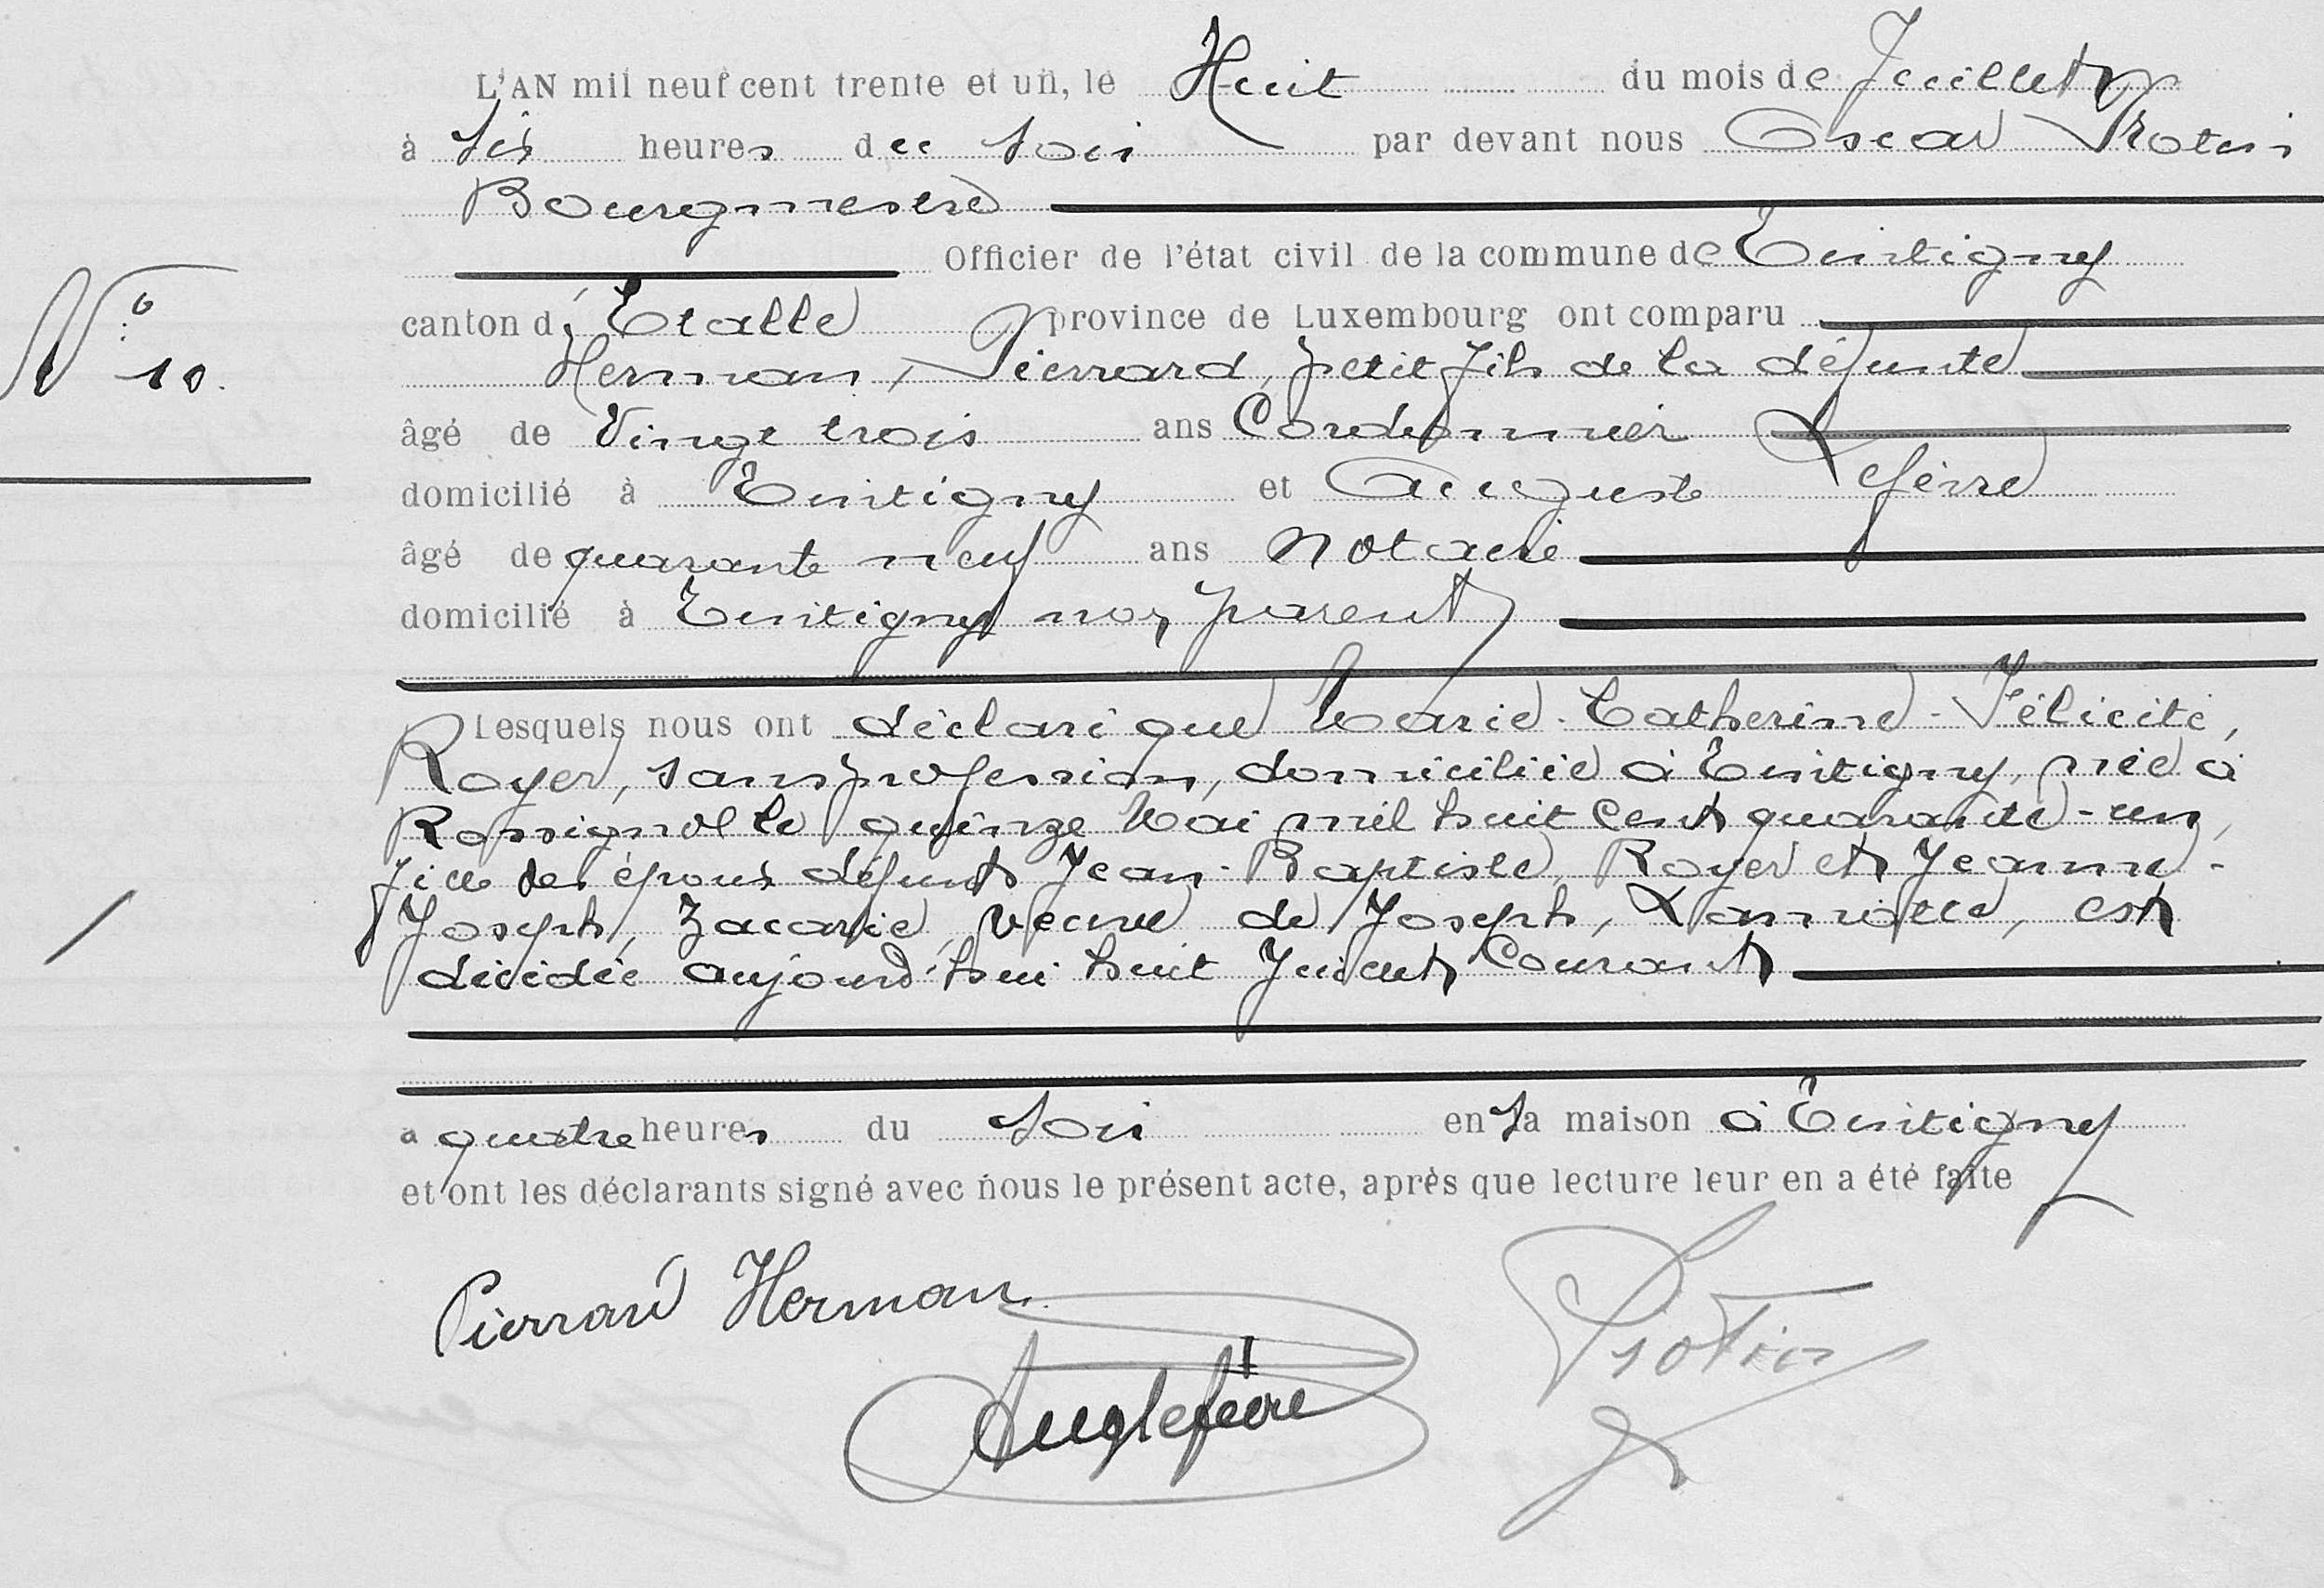 L'AN mil neuf cent trente et un, le Huit du mois de Juillet
à six heures du soir par devant nous Oscar Protin
Bourgmestre
Officier de l'état civil de la commune de Tintigny
canton d'Etalle province de Luxembourg ont comparu
N° 10.
Herman, Pierrard, petit fils de la défunte
âgé de Vingt trois ans Cordonnier
domicilié à Tintigny et Auguste Lefèvre
âgé de quarante neuf ans Notaire
domicilié à Tintigny non parent
Lesquels nous ont déclaré que Marie-Catherine-Félicité,
Royer, sans profession, domiciliée à Tintigny, née à
Rossignol le quinze Mai mil huit cent quarante-un,
fille des époux défunts Jean-Baptiste, Royer et Jeanne-
Joseph, Zacarie, veuve de Joseph, Lamotte, est
décédée aujourd'hui huit Juillet Courant
a quatre heures du soir en sa maison à Tintigny
et ont les déclarants signé avec nous le présent acte, après que lecture leur en a été faite
Pierrard Herman
Aug Lefèvre
Protin